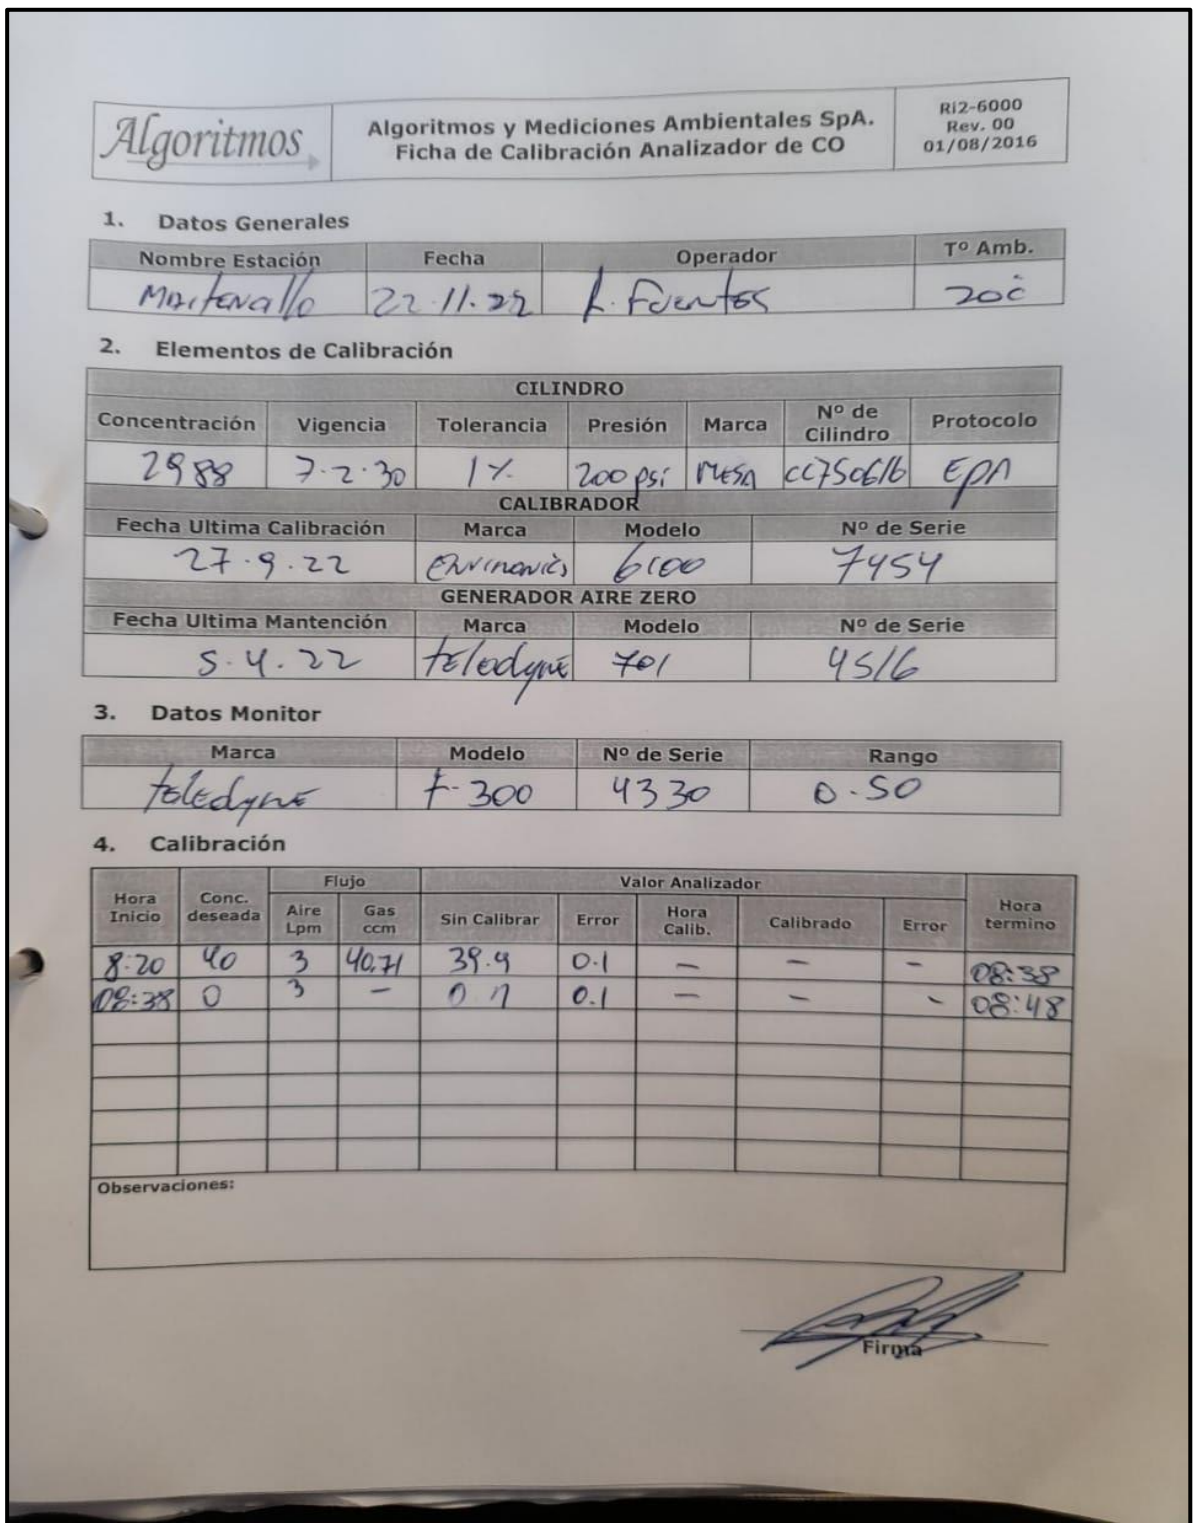 Algoritmos
Algoritmos y Mediciones Ambientales SpA.
Ficha de Calibración Analizador de CO
Ri2-6000
Rev. 00
01/08/2016
1. Datos Generales
Nombre Estación Fecha Operador Tº Amb.
22.11.22 Fuentes 20c
2. Elementos de Calibración
CILINDRO
Concentración Vigencia Tolerancia Presión Marca Nº de Cilindro Protocolo
2988 7.2.30 1% 200 psi MESA CC750616 EPA
CALIBRADOR
Fecha Ultima Calibración Marca Modelo Nº de Serie
27.9.22 6100 7454
GENERADOR AIRE ZERO
Fecha Ultima Mantención Marca Modelo Nº de Serie
5.4.22 teledyne 701 4516
3. Datos Monitor
Marca Modelo Nº de Serie Rango
teledyne 4330 0-50
4. Calibración
Flujo Valor Analizador
Hora Inicio Conc. deseada Aire Lpm Gas ccm Sin Calibrar Error Hora Calib. Calibrado Error Hora termino
8:20 40 3 40.71 39.9 0.1 - - - 08:38
08:38 0 3 - 0.1 - - - 08:48
Observaciones:
Firma